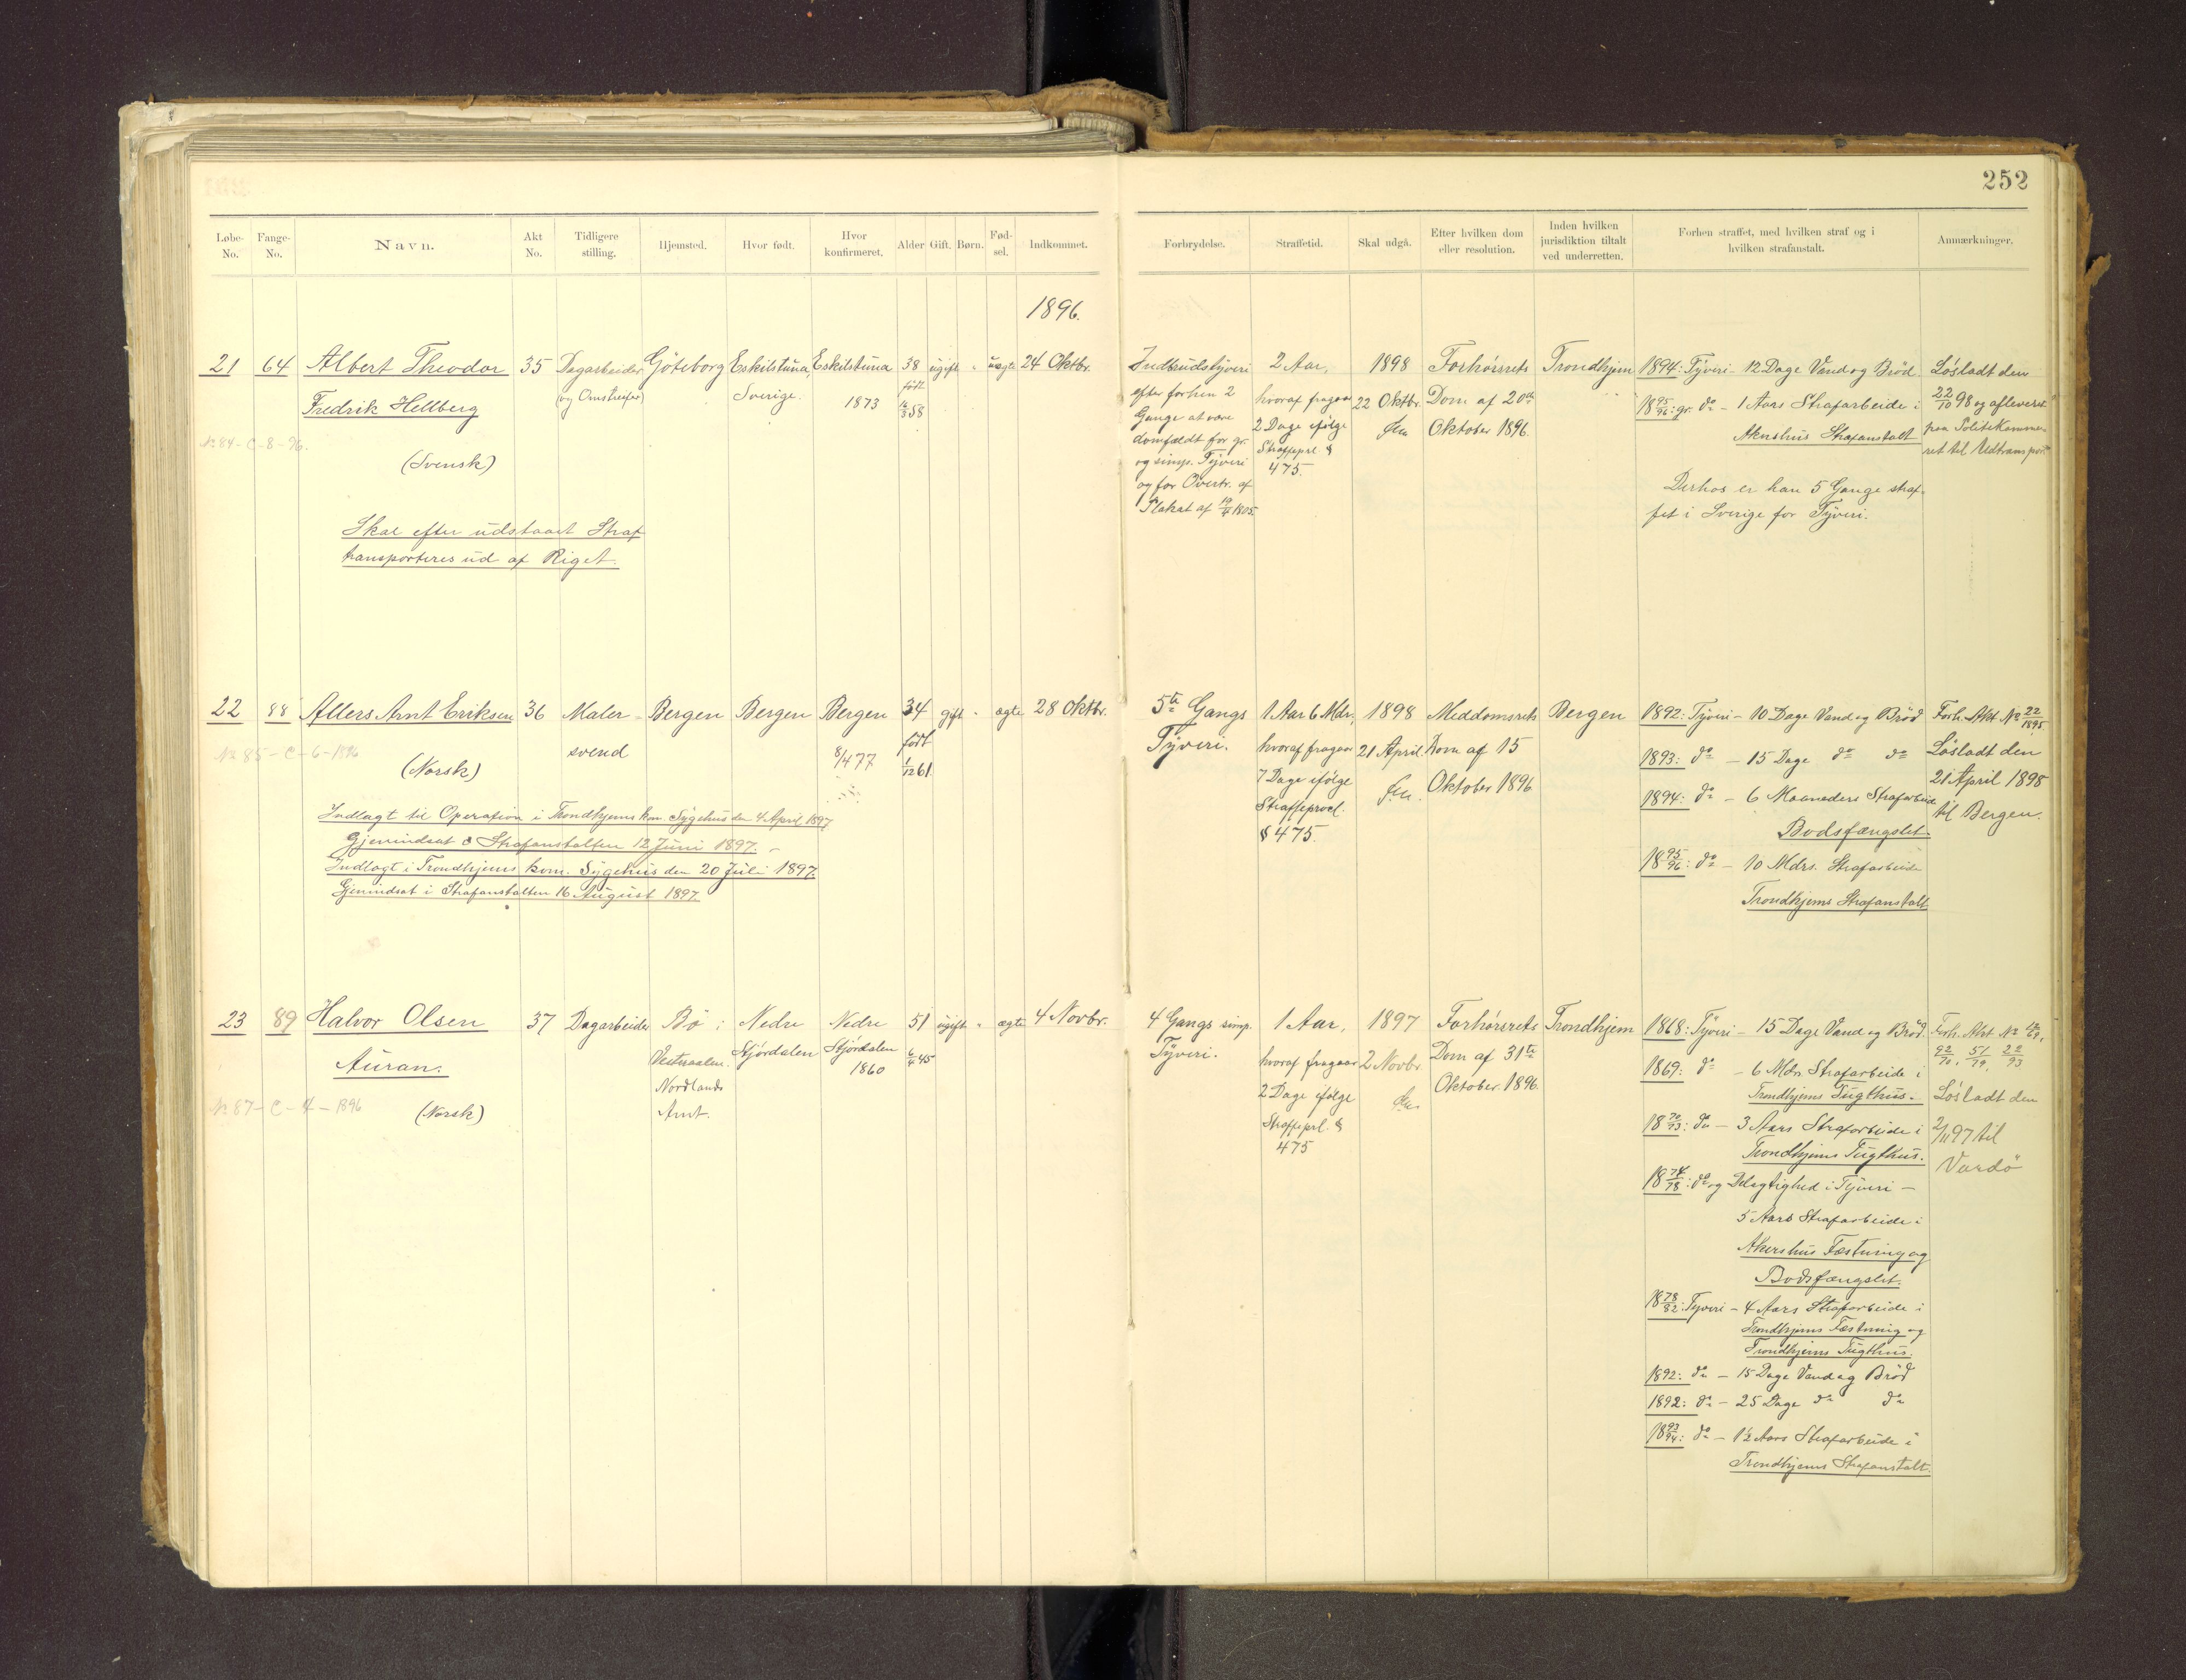 252
Løbe-No. Fange-No. Navn. Akt No. Tidligere stilling. Hjemsted. Hvor født. Hvor konfirmeret. Alder Gift. Børn. Fød-sel. Indkommet.
Forbrydelse. Straffetid. Skal udgå. Efter hvilken dom eller resolution. Inden hvilken jurisdiktion tiltalt ved underretten. Forhen straffet, med hvilken straf og i hvilken strafanstalt. Anmærkninger.
1896.
21 64 Albert Theodor 35 Dagarbeider Göteborg Eskilstuna, Eskilstuna 38 ugift " uægte 24 Oktbr.
Fredrik Hellberg (og Omstreifer) Sverige. 1873 født 16/3 58
No 84 - C - 8 - 96.
(Svensk)
Skal efter udstaaet Straf
transporteres ud af Riget.
Indbrudstyveri
efter forhen 2
Gange at være
domfældt for gr.
og simp. Tyveri
og for Overtr. af
Plakat af 19/4 1805.
2 Aar,
hvoraf fragaar
2 Dage ifølge
Straffeprl. §
475.
1898
22 Oktbr.
Em
Forhørsrets
Dom af 20de
Oktober 1896.
Trondhjem
1894: Tyveri 12 Dage Vand og Brød.
1895/96: gr. do - 1 Aars Strafarbeide i
Akershus Strafanstalt
Derhos er han 5 Gange straf-
fet i Sverige for Tyveri.
Løsladt den
22/10 98 og afleveret
paa Politikamme-
ret til Udtransport.
22 88 Allers Arnt Eriksen 36 Maler- Bergen Bergen Bergen 34 gift " ægte 28 Oktbr.
svend 8/4 77 født 1/12 61.
No 85 - C - 6 - 1896
(Norsk)
Indlagt til Operation i Trondhjems kom. Sygehus den 4 April 1897
Gjenindsat i Strafanstalten 12 Juni 1897. -
Indlagt i Trondhjems kom. Sygehus den 20 Juli 1897.
Gjenindsat i Strafanstalten 16 August 1897.
5te Gangs
Tyveri.
1 Aar 6 Mdr.
hvoraf fragaar
7 Dage ifølge
Straffeprocl.
§ 475.
1898
21 April
Em.
Meddomsrets
Dom af 15
Oktober 1896
Bergen
1892: Tyveri - 10 Dage Vand og Brød
1893: do - 15 Dage do do
1894: do - 6 Maaneders Strafarbeide
Bodsfængslet.
1895/96: do - 10 Mdrs. Strafarbeide
Trondhjems Strafanstalt
Forh. Akt No 22/1895.
Løsladt den
21 April 1898
til Bergen.
23 89 Halvor Olsen 37 Dagarbeider Bø i Nedre Nedre 51 ugift " ægte 4 Novbr.
Auran. Vesteraalen. Stjørdalen Stjørdalen 6/4 45
Nordlands 1860
Amt.
No 87 - C - 4 - 1896
(Norsk)
4 Gangs simp.
Tyveri.
1 Aar,
hvoraf fragaar
2 Dage ifølge
Straffeprl. §
475
1897
2 Novbr.
Em.
Forhørsrets
Dom af 31te
Oktober 1896.
Trondhjem
1868: Tyveri - 15 Dage Vand og Brød.
1869: do - 6 Mdr. Strafarbeide i
Trondhjems Tugthus.
1870/73: do - 3 Aars Strafarbeide i
Trondhjems Tugthus.
1874/78: do og Delagtighed i Tyveri -
5 Aars Strafarbeide i
Akershus Fæstning og
Bodsfængslet.
1878/82: Tyveri - 4 Aars Strafarbeide i
Trondhjems Fæstning og
Trondhjems Tugthus.
1892: do - 15 Dage Vand og Brød
1892: do - 25 Dage do do
1893/94: do - 1½ Aars Strafarbeide i
Trondhjems Strafanstalt.
Forh. Akt No
92/70, 51/79, 22/93
Løsladt den
2/11 97 til
Vardø